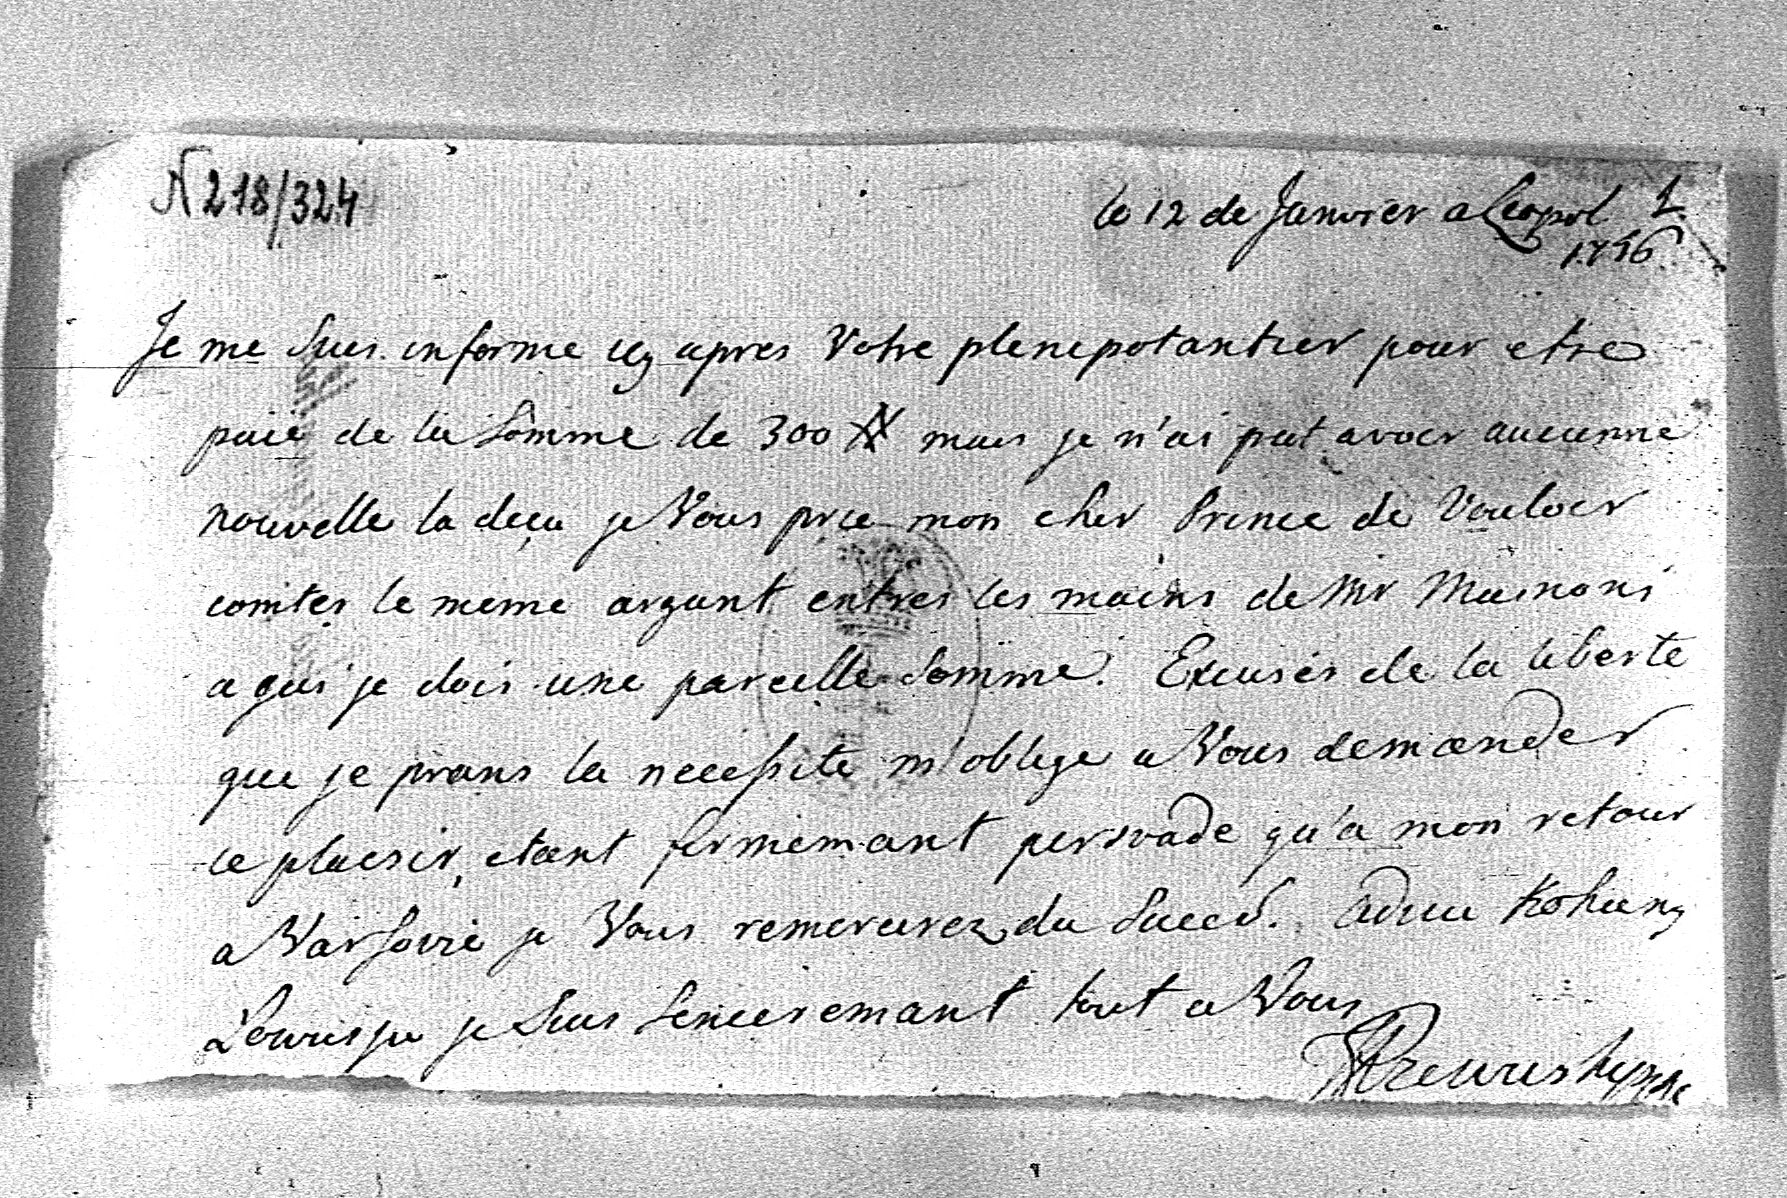 N 218/324
le 12 de Janvier a Leopol 1.
1756
Je me suis informe icy apres Votre plenipotantier pour etre
paié de la somme de 300 # mais je n'ai put avoir aucunne
nouvelle la deçu je Vous prie mon cher Prince de Vouloir
comter le meme argant entres les mains de Mr Mainoni
a qui je dois une pareille somme. Excusés de la liberte
que je prans la necessite m'oblige a Vous demander
ce plaisir, etant fermemant persvade qu'a mon retour
a Varsovie je Vous remercirez du succes. Adieu Kohany
je suis sinceremant tout a Vous